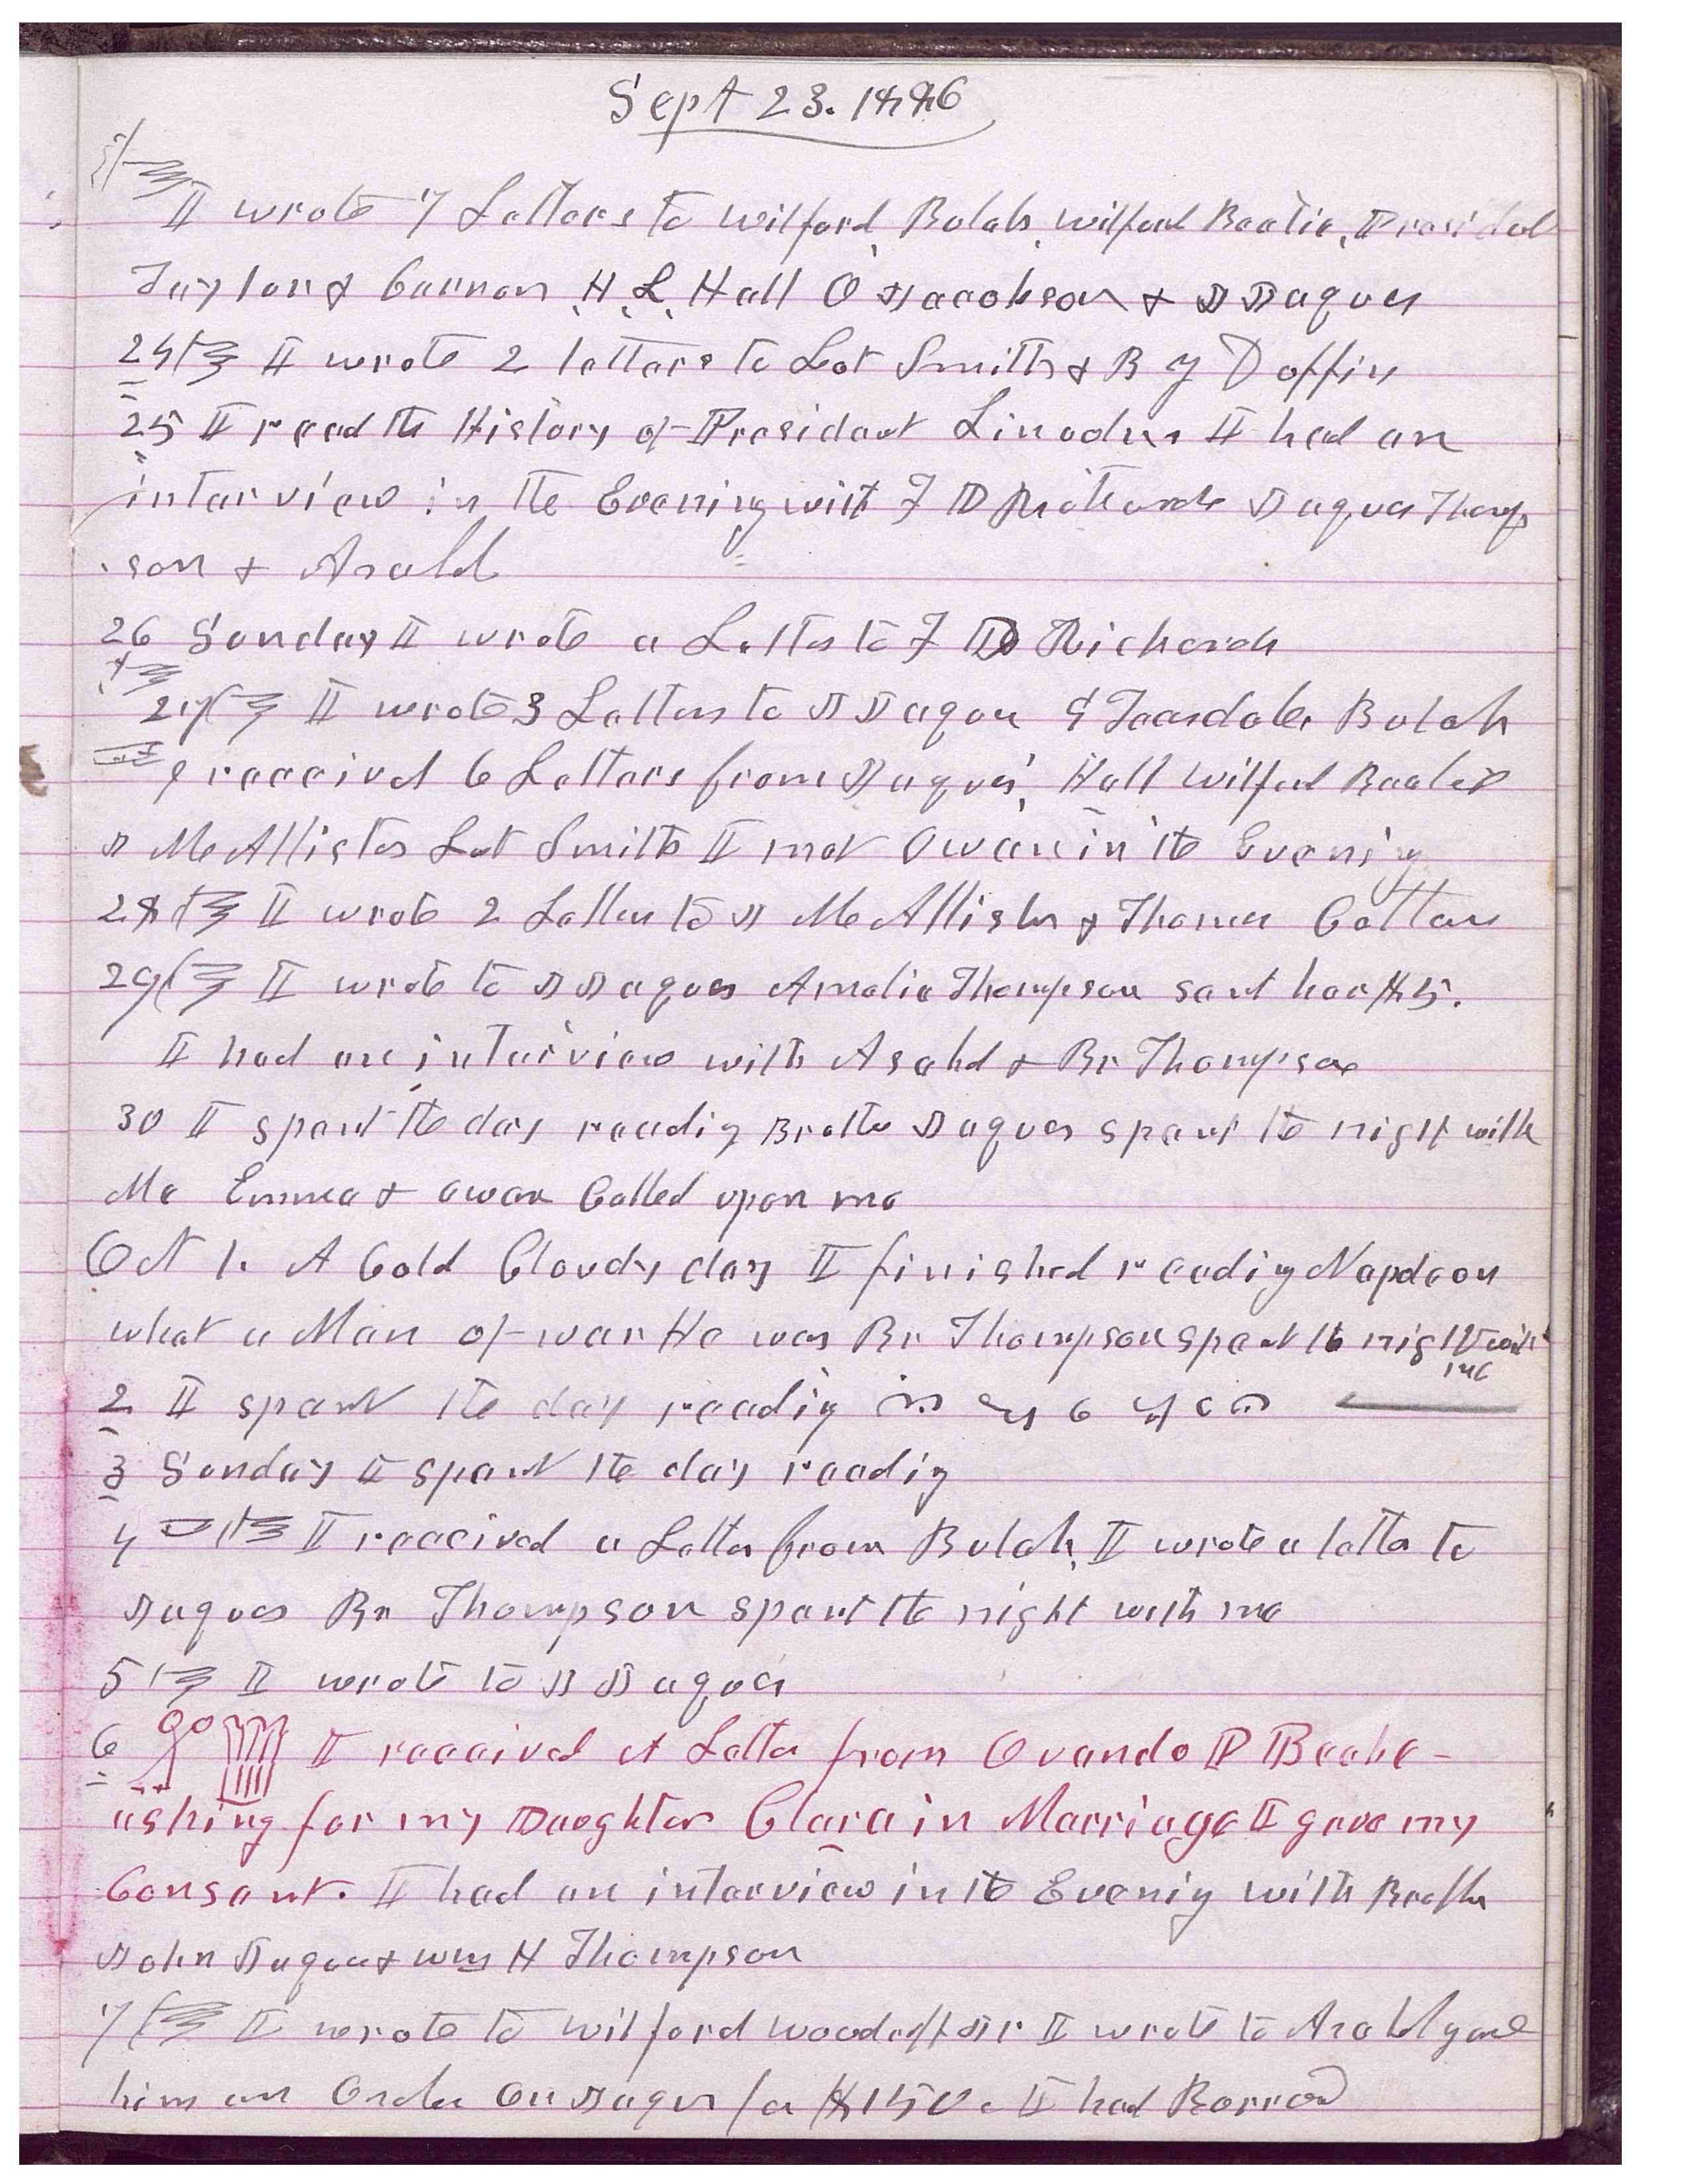 Sept 23. 1886
I wrote 7 Letters to Wilford, Bulah, Wilford Beatie, Presidet
Taylor & Cannon H. L. Hall O Jacobson & J Jaques
24 I wrote 2 letters to Lot Smith & B Y Duffin
25 I read the History of President Lincoln I had an
interview in the Evening with F D Richards Jaques Thomp
son & Asahel
26 Sunday I wrote a Letter to F D Richards
27 I wrote 3 Letters to J Jaques & Teasdale, Bulah
& received 6 Letters from Jaques, Hall Wilford Beatie
J McAllister Lot Smith I met Owen in the Evening
28 I wrote 2 Letters to J McAllister & Thomas Cottam
29 I wrote to J Jaques Amelia Thompson sent her $5.
I had an interview with Asahel & Br Thompson
30 I spent the day reading Brother Jaques spent the night with
Me Emma & Owen Called upon me
Oct 1. A Cold Cloudy day I finished reading Napoleon
what a Man of war He was Br Thompson spent the night with
me
2 I spent the day reading
3 Sunday I spent the day reading
4 I received a Letter from Bulah, I wrote a letter to
Jaques Br Thompson spent the night with me
5 I wrote to J Jaques
6 I received A Letter from Ovando P Beebe
asking for my Daughter Clara in Marriage I gave my
Consent. I had an interview in the Evening with Brother
John Jaques & Wm H Thompson
7 I wrote to Wilford Woodruff Jr I wrote to Asahel gave
him an Order On Jaques for $150. I had Borrow